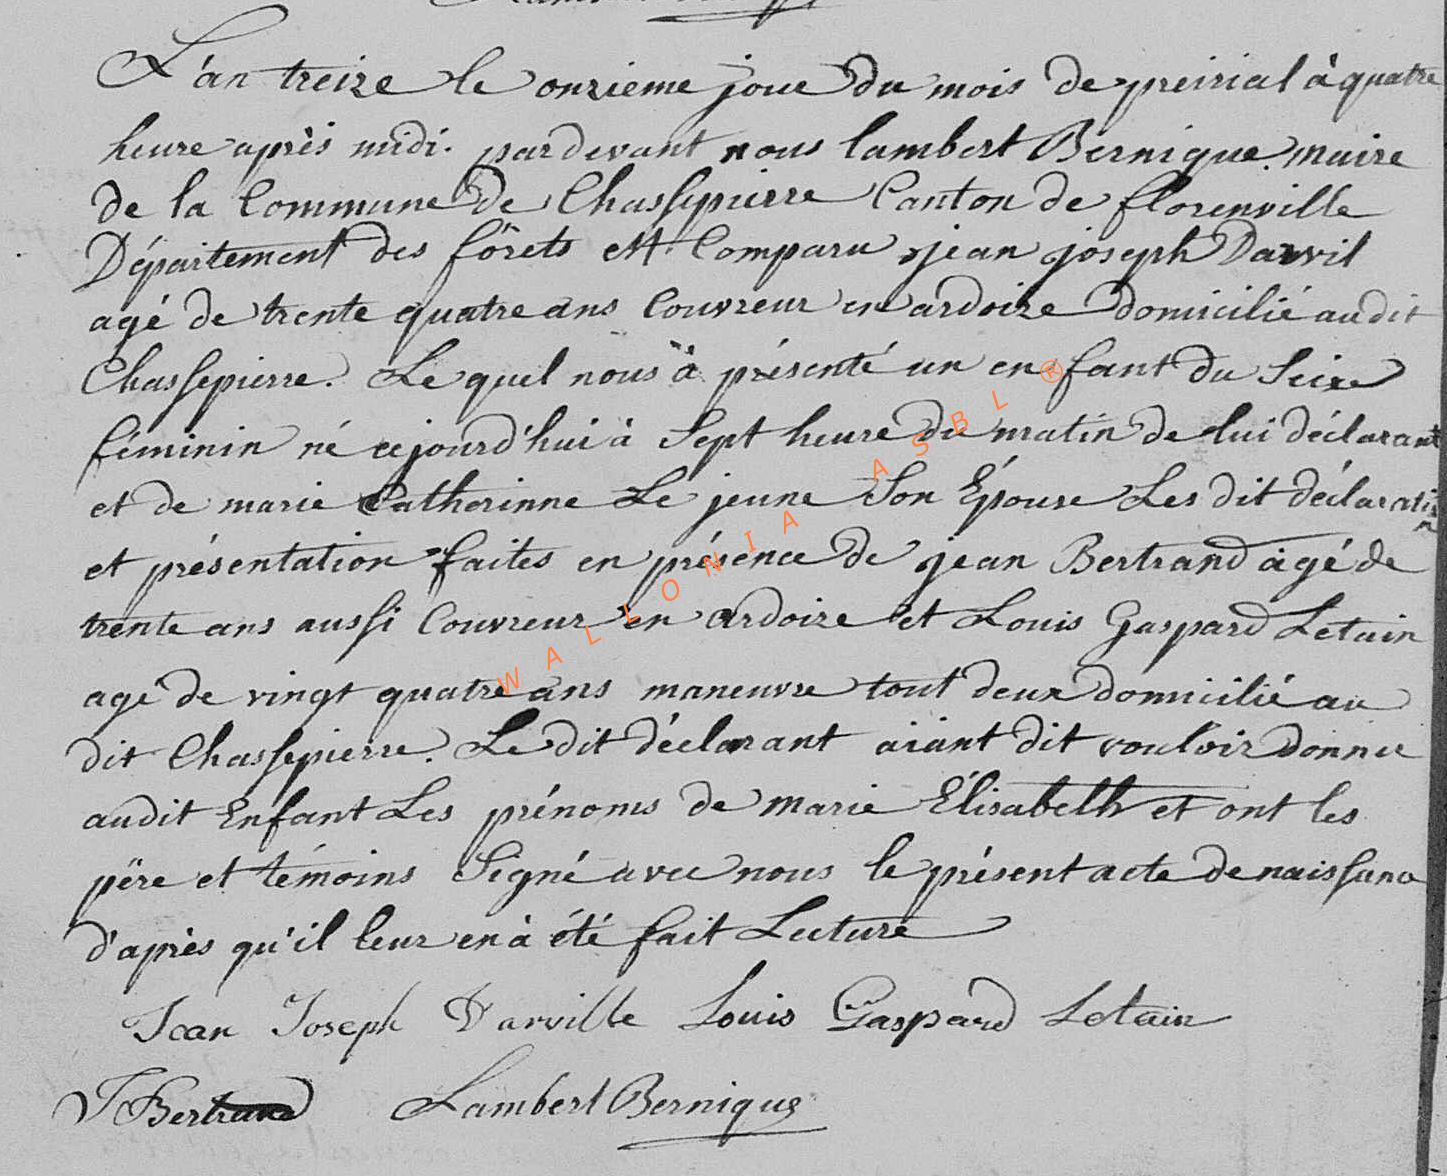 L'an treize le onzieme jour du mois de preirial à quatre
heure après midi. pardevant nous lambert Bernique maire
de la Commune de Chassepierre Canton de florenville
Département des fôrets est Comparu jean joseph Darvil
agé de trente quatre ans Couvreur en ardoize domicilié audit
Chassepierre. Le quel nous à présenté un enfant du Seixe
féminin né cejourd'hui à Sept heure du matin de lui déclarant
et de marie Catherinne Le jeune Son Épouse Les dit déclaration
et présentation faites en présence de jean Bertrand àgé de
trente ans aussi Couvreur en ardoize et Louis Gaspard Letain
agé de vingt quatre ans maneuvre tout deux domicilié au
dit Chassepierre. Le dit déclarant aiant dit vouloir donner
audit Enfant Les prénoms de marie Élisabeth et ont les
père et témoins Signé avec nous le présent acte de naissance
d'après qu'il leur en à été fait Lecture
Jean Joseph Darville Louis Gaspard Letain
J Bertrand Lambert Bernique
WALLONIA ASBL ®